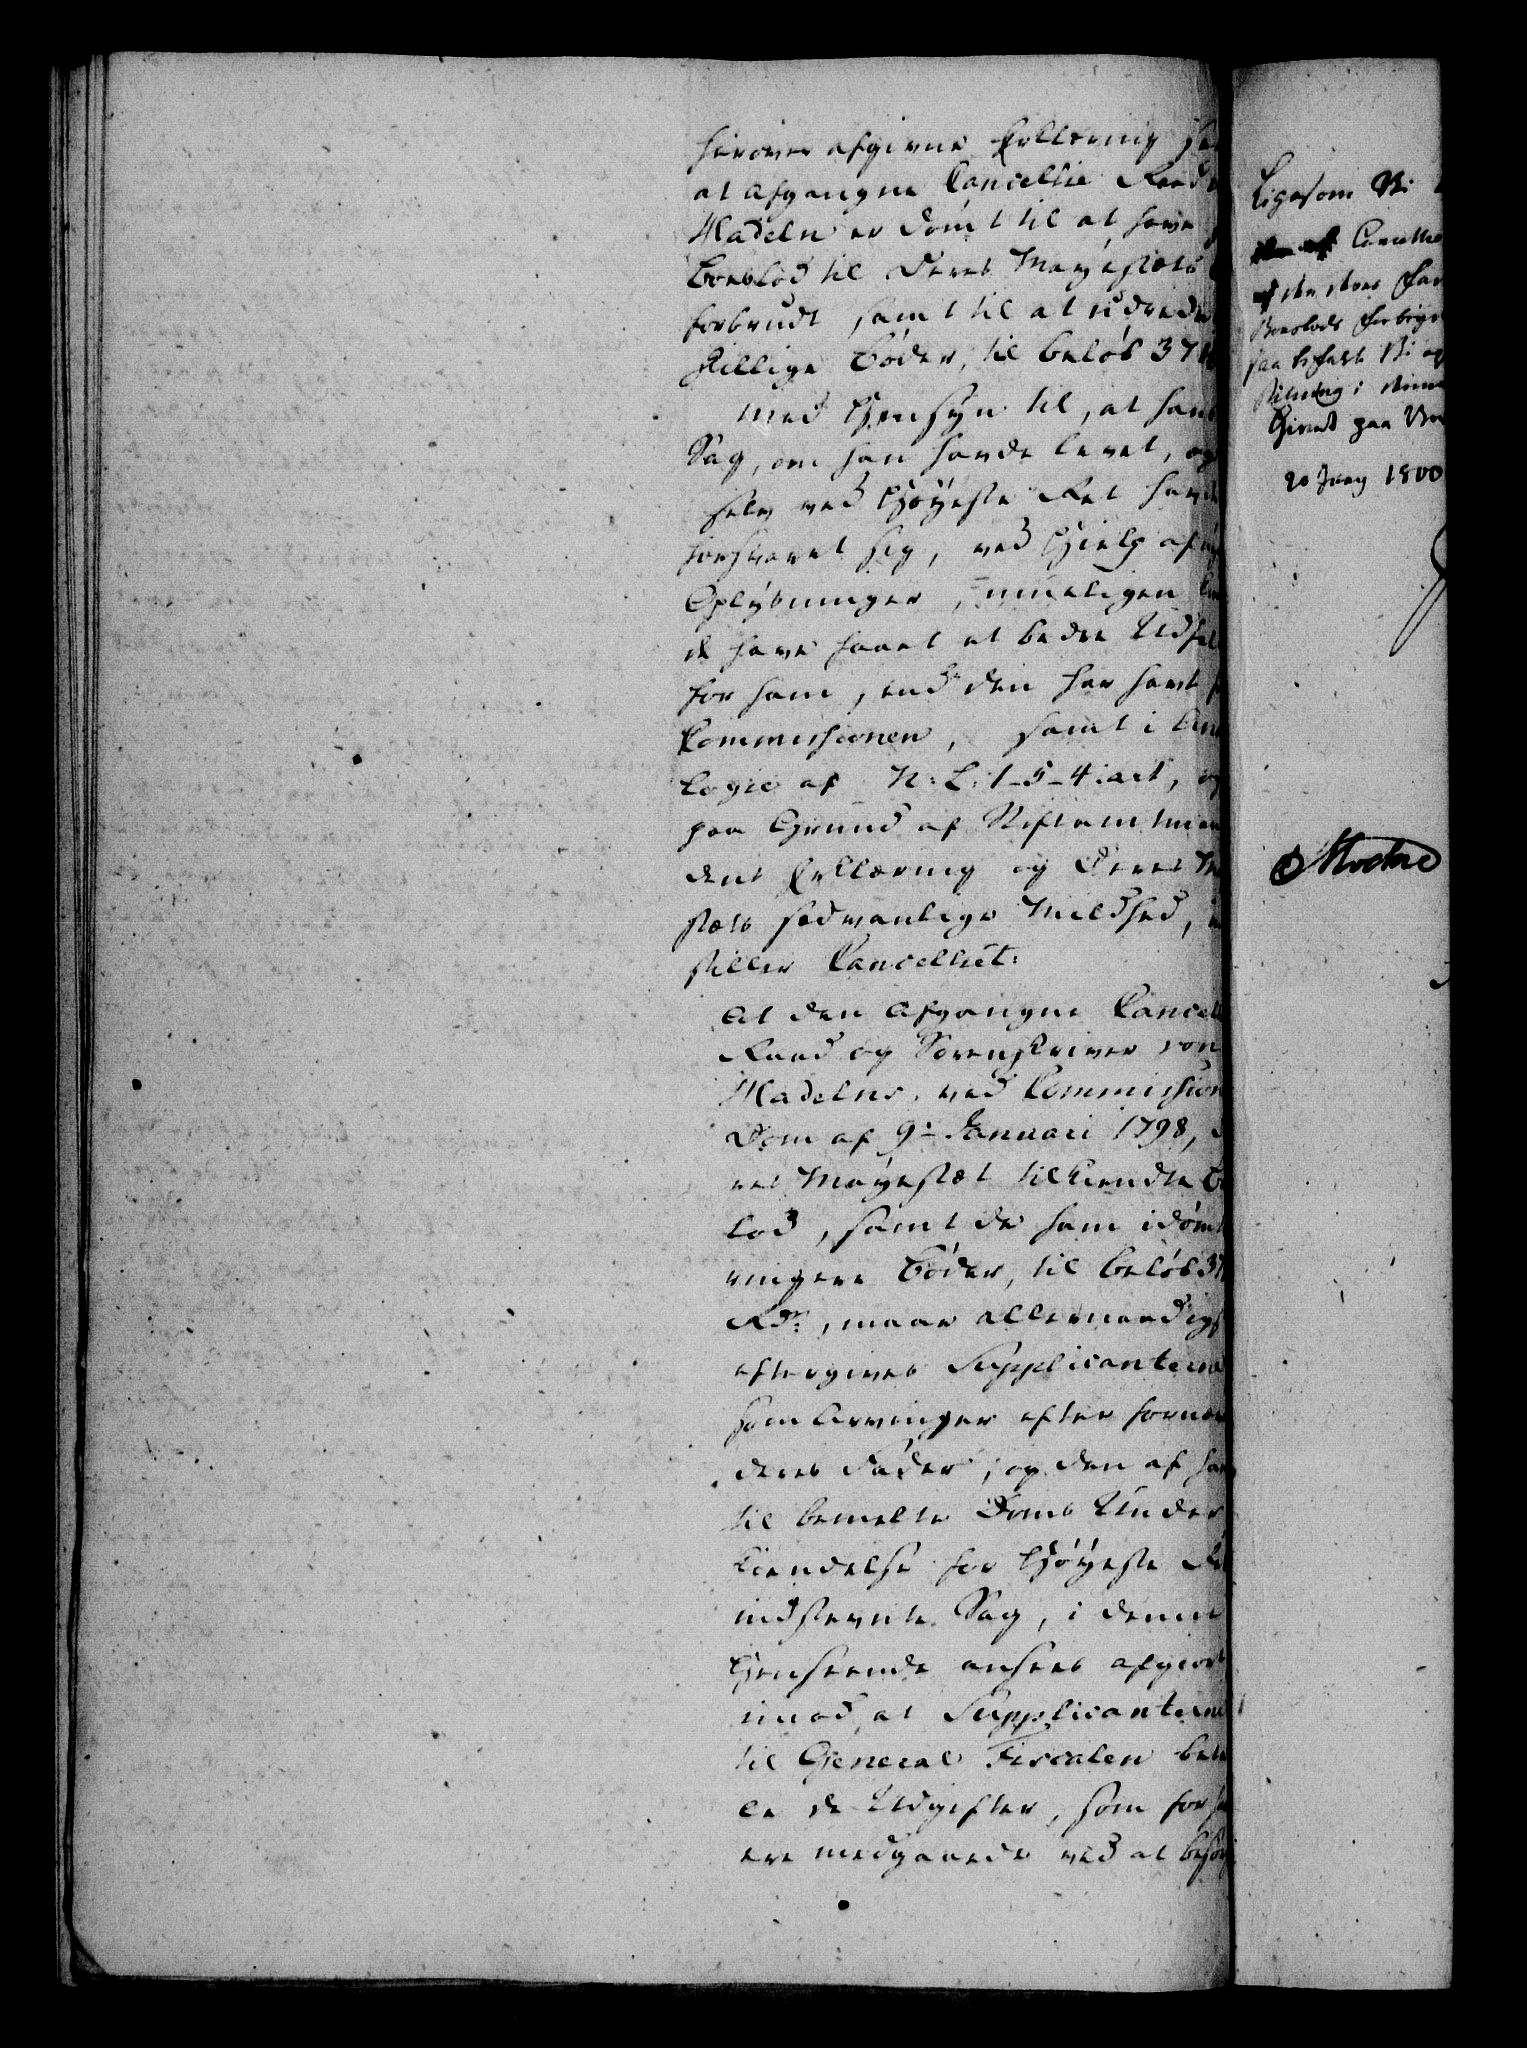 herover afgivne Erklæring
at afgangne Cancellie Raad
Hadeln er dømt til at have
Boeslod til Deres Mayestæts
forbrudt, samt til at udrede
skillige Bøder, til Beløb 37
Med Hensyn til, at hans
Sag, om han havde levet, og
selv ved Høyeste Ret havde
forsvaret sig, ved Hielp af
Oplysninger, rimeligen
de have faaet et bedre Udfal
for ham, end den har havt
Commissionen, samt i Ana
logie af N: L: 1-5-4: art, og
paa Grund af Stiftamtman
dens Erklæring og Deres
stæts sædvanlige Mildhed,
stiller Cancelliet:
At den afgangne Cancelli
Raad og Sorenskriver von
Hadelns, ved Commission
Dom af 9de Januari 1798,
res Mayestæt tilkiendte
lod, samt de ham idømt
ringere Bøder, til Beløb 37
Rdr, maae allernaadigst
eftergives Supplicanterne
som Arvinger efter fornæv
deres Fader, og den af ham
til bemelte Doms Under
kiendelse for Høyeste Ret
indstevnte Sag, i denne
Henseende ansees afgiort
imod, at Supplicanterne
til General Fiscalen beta
le de Udgifter, som for
ere medgaaede ved at besør
Ligesom Vi
Cancellie
Boeslods
saa
stilling i
Givet paa Vor
20 Juny 1800
Moltke